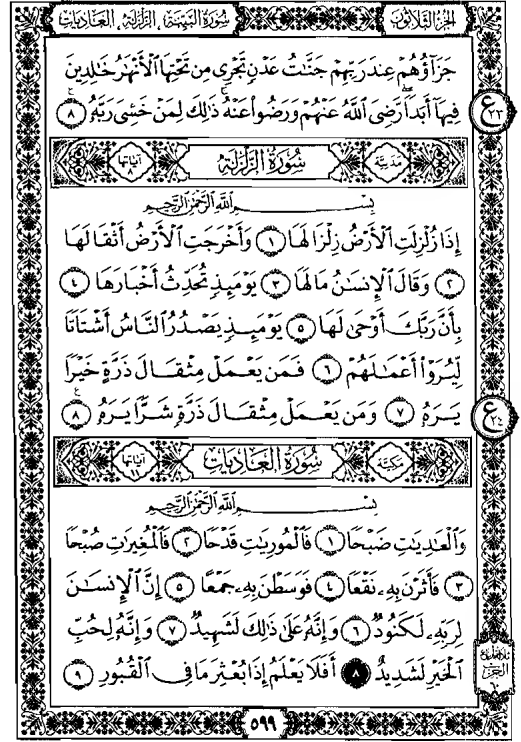 الجزء الثلاثون
سورة البينة، الزلزلة، العاديات
جَزَآؤُهُمْ عِندَ رَبِّهِمْ جَنَّٰتُ عَدْنٍ تَجْرِى مِن تَحْتِهَا ٱلْأَنْهَٰرُ خَٰلِدِينَ
فِيهَآ أَبَدًا رَّضِىَ ٱللَّهُ عَنْهُمْ وَرَضُوا۟ عَنْهُ ذَٰلِكَ لِمَنْ خَشِىَ رَبَّهُۥ ٨
ع ٢٣
مدنية سُورَةُ الزَّلْزَلَةِ آياتها ٨
بِسْمِ ٱللَّهِ ٱلرَّحْمَٰنِ ٱلرَّحِيمِ
إِذَا زُلْزِلَتِ ٱلْأَرْضُ زِلْزَالَهَا ١ وَأَخْرَجَتِ ٱلْأَرْضُ أَثْقَالَهَا
٢ وَقَالَ ٱلْإِنسَٰنُ مَا لَهَا ٣ يَوْمَئِذٍ تُحَدِّثُ أَخْبَارَهَا ٤
بِأَنَّ رَبَّكَ أَوْحَىٰ لَهَا ٥ يَوْمَئِذٍ يَصْدُرُ ٱلنَّاسُ أَشْتَاتًا
لِّيُرَوْا۟ أَعْمَٰلَهُمْ ٦ فَمَن يَعْمَلْ مِثْقَالَ ذَرَّةٍ خَيْرًا
يَرَهُۥ ٧ وَمَن يَعْمَلْ مِثْقَالَ ذَرَّةٍ شَرًّا يَرَهُۥ ٨
ع ٢٤
مكية سُورَةُ العَادِيَاتِ آياتها ١١
بِسْمِ ٱللَّهِ ٱلرَّحْمَٰنِ ٱلرَّحِيمِ
وَٱلْعَٰدِيَٰتِ ضَبْحًا ١ فَٱلْمُورِيَٰتِ قَدْحًا ٢ فَٱلْمُغِيرَٰتِ صُبْحًا
٣ فَأَثَرْنَ بِهِۦ نَقْعًا ٤ فَوَسَطْنَ بِهِۦ جَمْعًا ٥ إِنَّ ٱلْإِنسَٰنَ
لِرَبِّهِۦ لَكَنُودٌ ٦ وَإِنَّهُۥ عَلَىٰ ذَٰلِكَ لَشَهِيدٌ ٧ وَإِنَّهُۥ لِحُبِّ
ٱلْخَيْرِ لَشَدِيدٌ ٨ أَفَلَا يَعْلَمُ إِذَا بُعْثِرَ مَا فِى ٱلْقُبُورِ ٩
٥٩٩